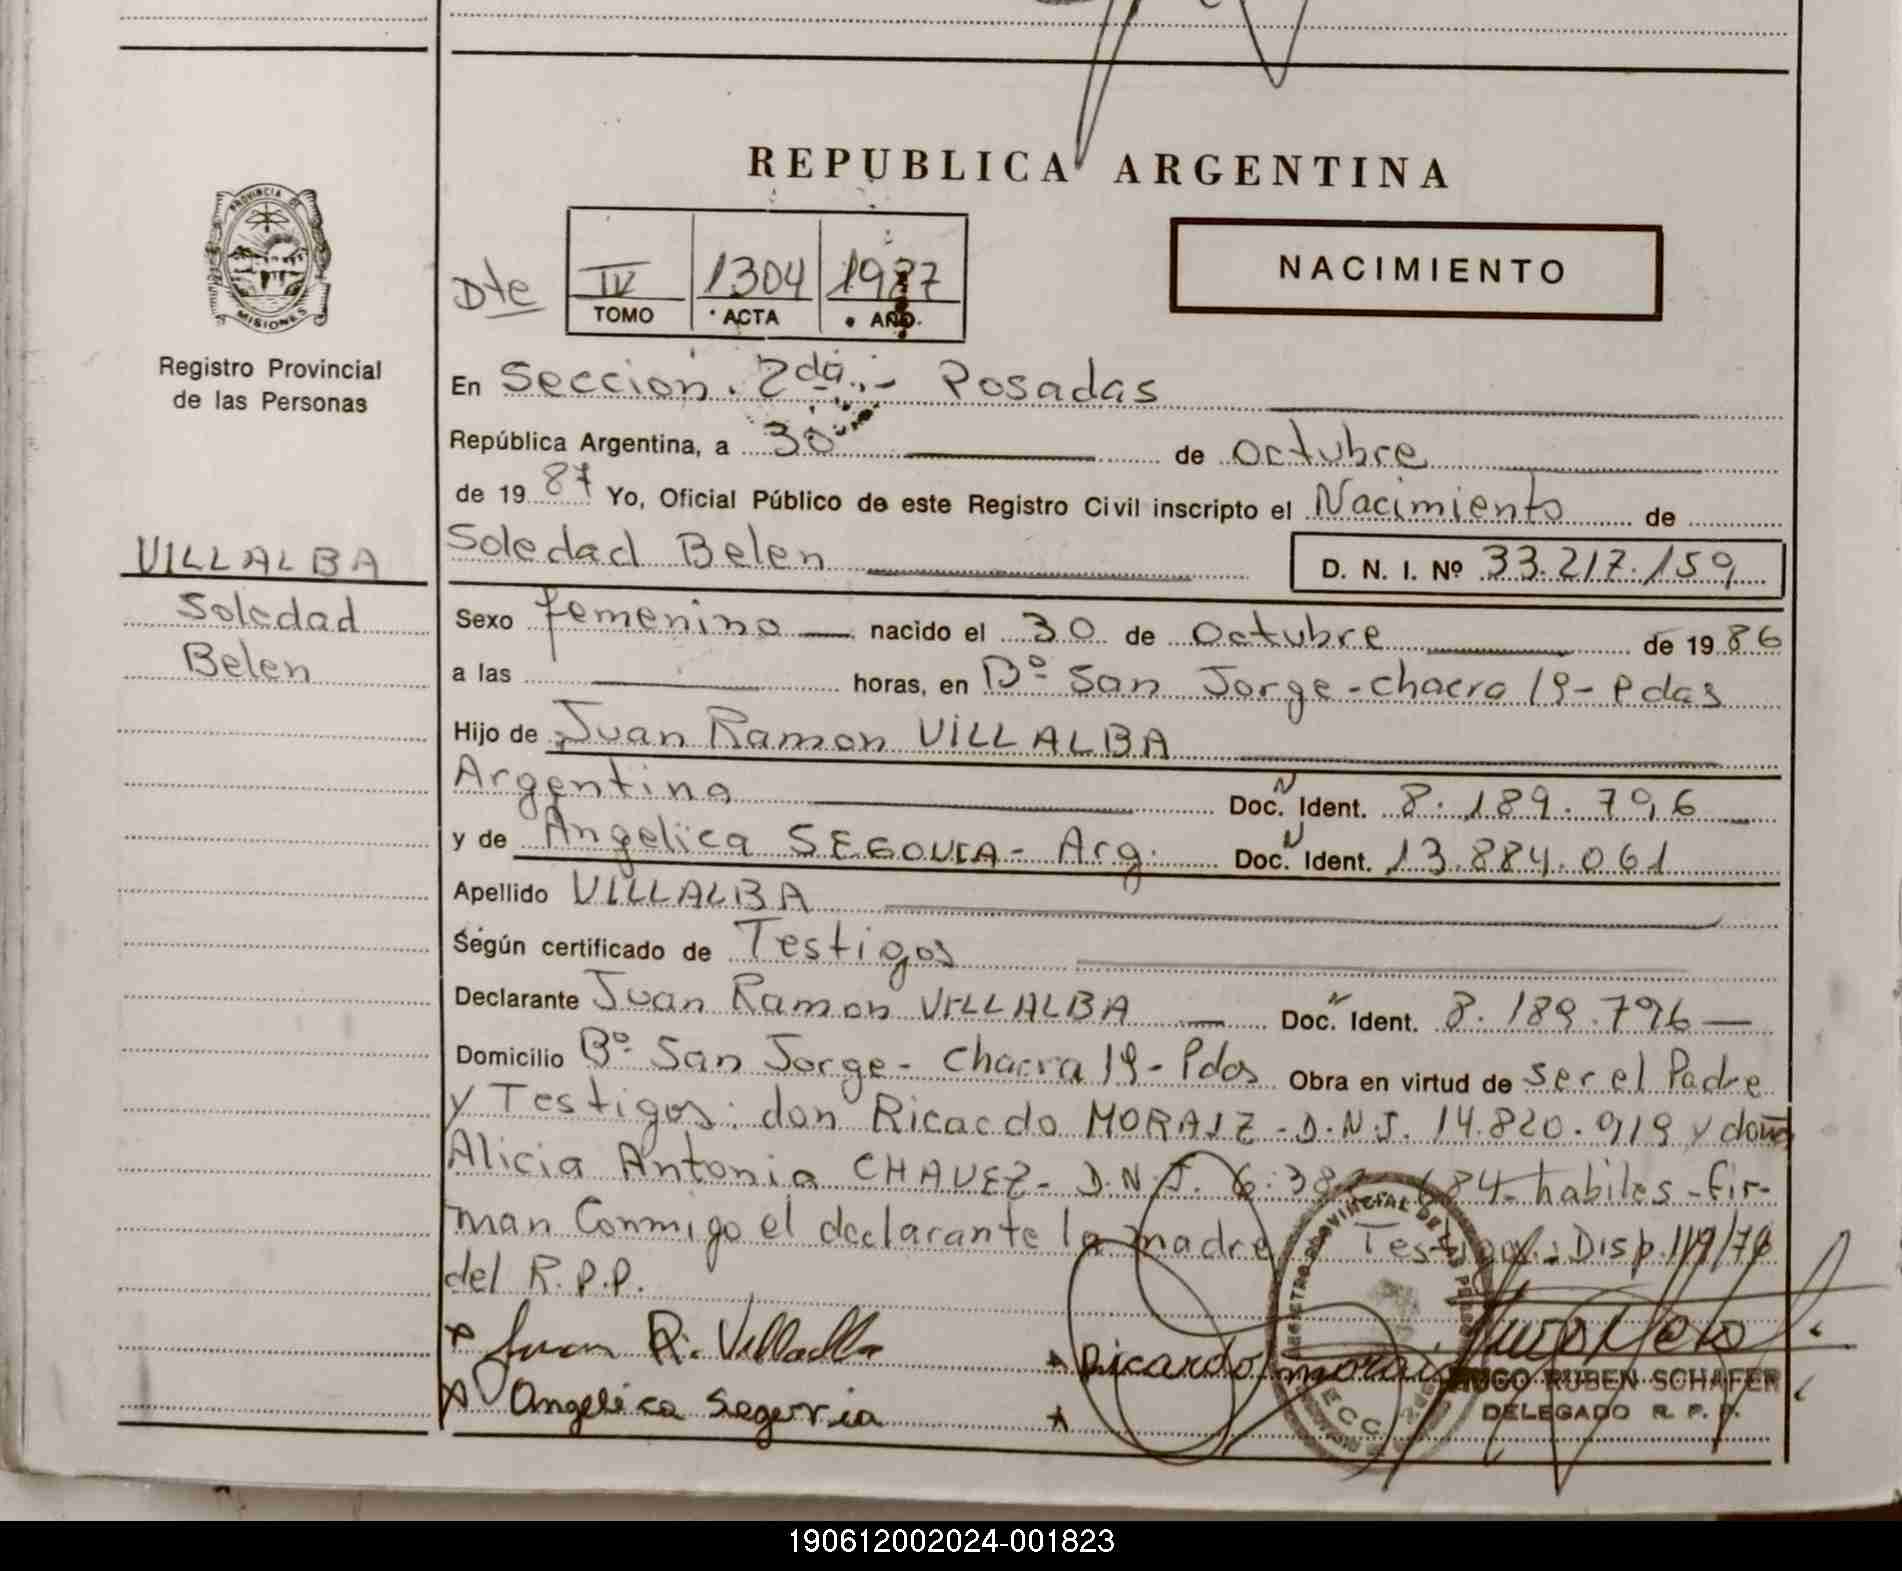 REPUBLICA ARGENTINA
NACIMIENTO
PROVINCIA DE
MISIONES
Registro Provincial
de las Personas
VILLALBA
Soledad
Belen
Dte
IV 1304 1987
TOMO ACTA AÑO
En Seccion 2da.- Posadas
República Argentina, a 30 de octubre
de 1987 Yo, Oficial Público de este Registro Civil inscripto el Nacimiento de
Soledad Belen D. N. I. Nº 33.217.159
Sexo femenino nacido el 30 de octubre de 1986
a las horas, en Bº San Jorge - chacra 19 - Pdas
Hijo de Juan Ramon VILLALBA
Argentino Doc. Ident. 8.189.796
y de Angelica SEGOVIA - Arg. Doc. Ident. 13.884.061
Apellido VILLALBA
Según certificado de Testigos
Declarante Juan Ramon VILLALBA Doc. Ident. 8.189.796
Domicilio Bº San Jorge - Chacra 19 - Pdas Obra en virtud de ser el Padre
y Testigos: don Ricardo MORAIZ - D.N.I. 14.820.919 y doña
Alicia Antonia CHAVEZ - D.N.I. 684 - habiles - fir-
man Conmigo el declarante la madre Testigos. Disp.
del R.P.P.
Juan R. Villalba
Ricardo
Angelica Segovia
HUGO RUBEN SCHAFER
DELEGADO R. P. P.
190612002024-001823